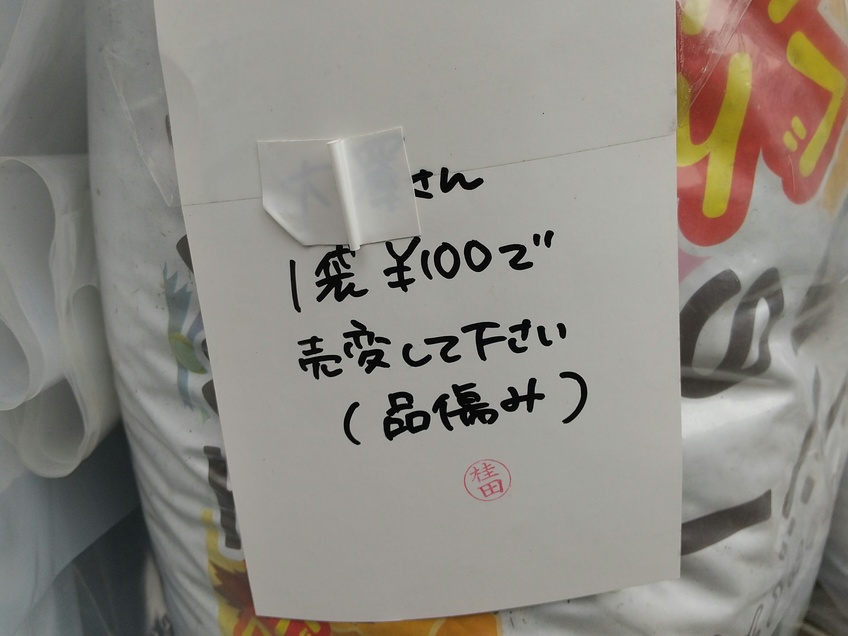 さん
1袋 ¥100で
売変して下さい
(品傷み)
桂田